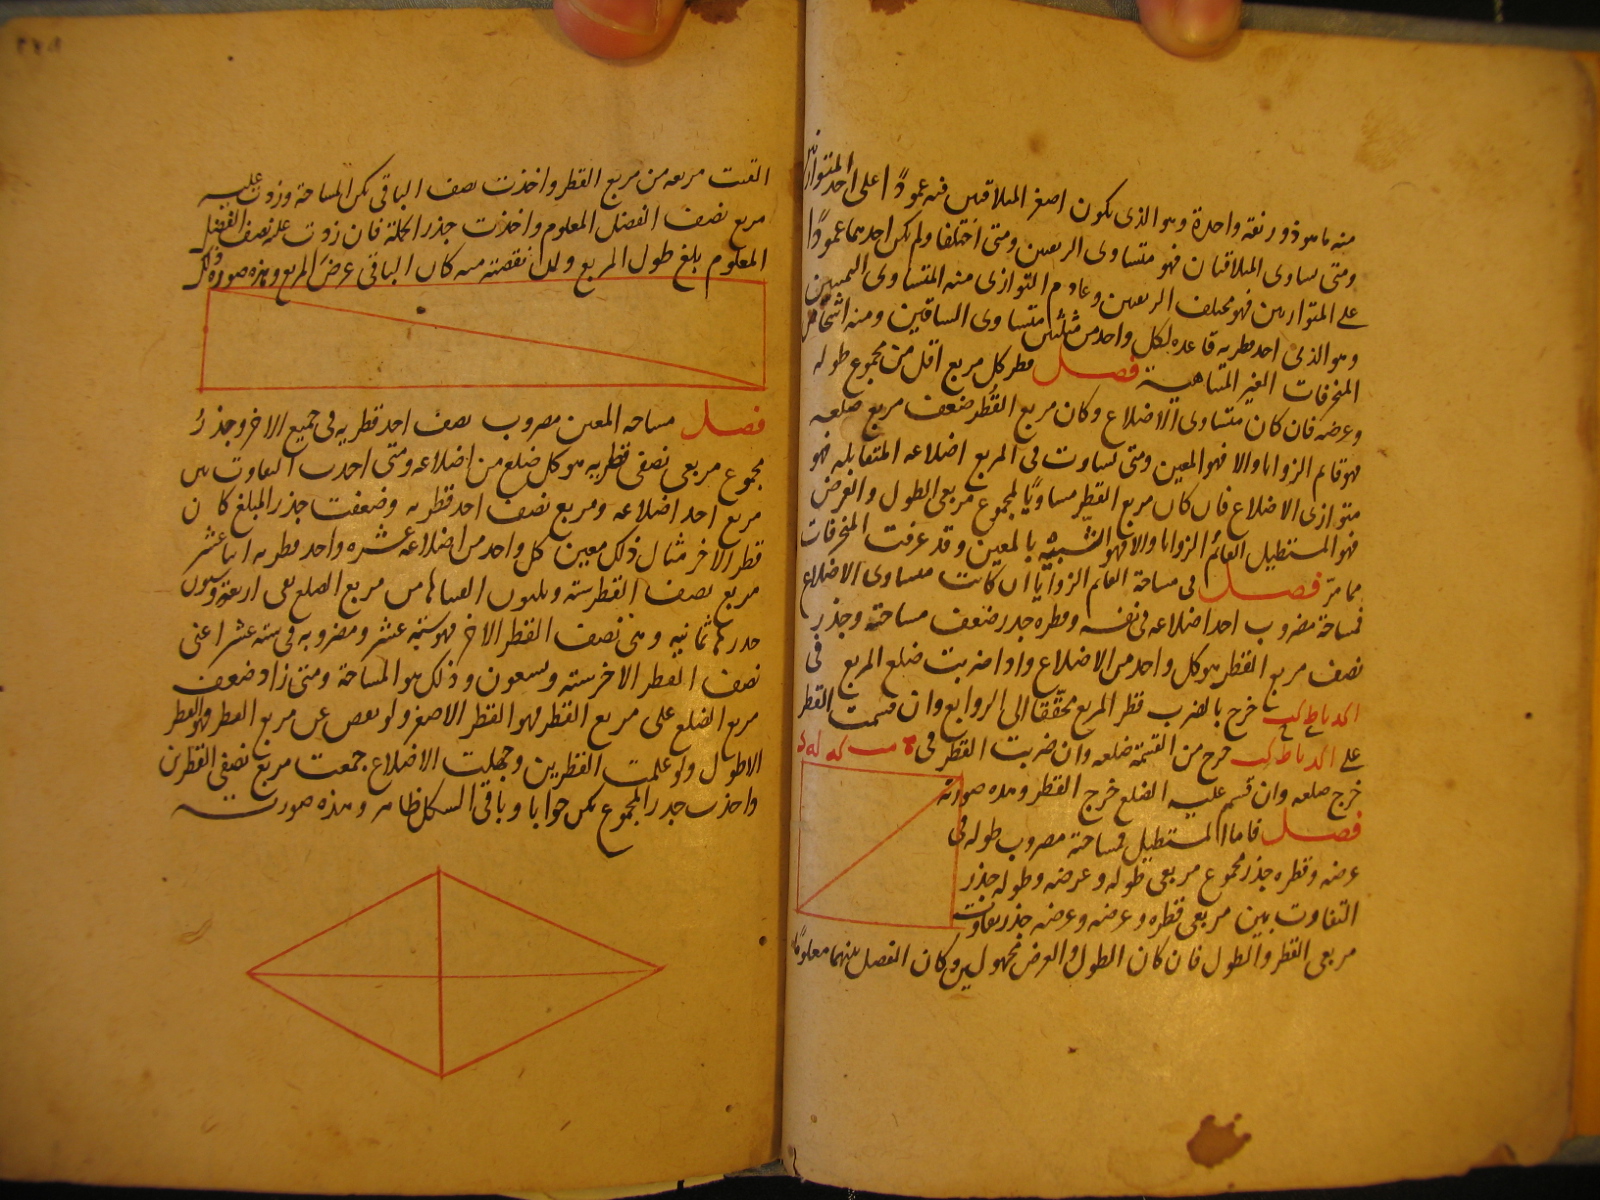 منه ما هو ذو زنقة واحدة وهو الذى يكون اصغر المتلاقيين فيه عمودًا على احد المتوازيين
ومتى تساوى المتلاقيان فهو متساوى الزنقتين ومتى اختلفا ولم يكن احدهما عمودًا
على المتوازيين فهو مختلف الزنقتين وعادم التوازى منه المتساوى
وهو الذى احد قطريه قاعدة لكل واحد من مثلثين متساوى الساقين ومنه
المنحرفات الغير المتناهية فصل قطر كل مربع اقل من مجموع طوله
وعرضه فان كان متساوى الاضلاع وكان مربع القطر ضعف مربع ضلعه
فهو قائم الزوايا والا فهو المعين ومتى تساوت فى المربع اضلاعه المتقابلة فهو
متوازى الاضلاع فان كان مربع القطر مساويًا لمجموع مربعى الطول والعرض
فهو المستطيل القائم الزوايا والا فهو الشبيه بالمعين وقد عرفت المنحرفات
مما مرّ فصل فى مساحة القائم الزوايا ان كانت متساوى الاضلاع
فمساحته مضروب احد اضلاعه فى نفسه وقطره جذر ضعف مساحته وجذر
نصف مربع القطر هو كل واحد من الاضلاع واذا ضربت ضلع المربع فى
ا كد نا ط كب خرج بالضرب قطر المربع محققا الى الروابع وان قسمت القطر
على ا كد نا ط كب خرج من القسمة ضلعه وان ضربت القطر فى
خرج ضلعه وان قسم عليه الضلع خرج القطر وهذه صورته
فصل فاما المستطيل فمساحته مضروب طوله فى
عرضه وقطره جذر مجموع مربعى طوله وعرضه وطوله جذر
التفاوت بين مربعى قطره وعرضه وعرضه جذر تفاوت
مربعى القطر والطول فان كان الطول والعرض مجهولين وكان الفضل بينهما معلومًا
القيت مربعه من مربع القطر واخذت نصف الباقى يكن المساحة وزدت عليه
مربع نصف الفضل المعلوم واخذت جذر الجملة فان زدت عليه نصف الفضل
المعلوم بلغ طول المربع ولئن نقصته منه كان الباقى عرض المربع وهذه صورة ذلك
فصل مساحة المعين مضروب نصف احد قطريه فى جميع الاخر وجذر
مجموع مربعى نصفى قطريه هو كل ضلع من اضلاعه ومتى اخذت التفاوت بين
مربع احد اضلاعه ومربع نصف احد قطريه وضعفت جذر المبلغ كان
قطر الاخر مثال ذلك معين كل واحد من اضلاعه عشرة واحد قطريه اثنا عشر
مربع نصف القطر ستة وثلثون القيناها من مربع الضلع بقى اربعة وستون
جذرها ثمانية وهى نصف القطر الاخر فهو ستة عشر ومضروبه فى ستة عشر اعنى
نصف القطر الاخر ستة وتسعون وذلك هو المساحة ومتى زاد ضعف
مربع الضلع على مربع القطر فهو القطر الاصغر ولو نقص عن مربع القطر فهو القطر
الاطول ولو علمت القطرين وجهلت الاضلاع جمعت مربع نصفى القطرين
واخذت جذر المجموع يكن جوابا وباقى الشكل ظاهر وهذه صورته